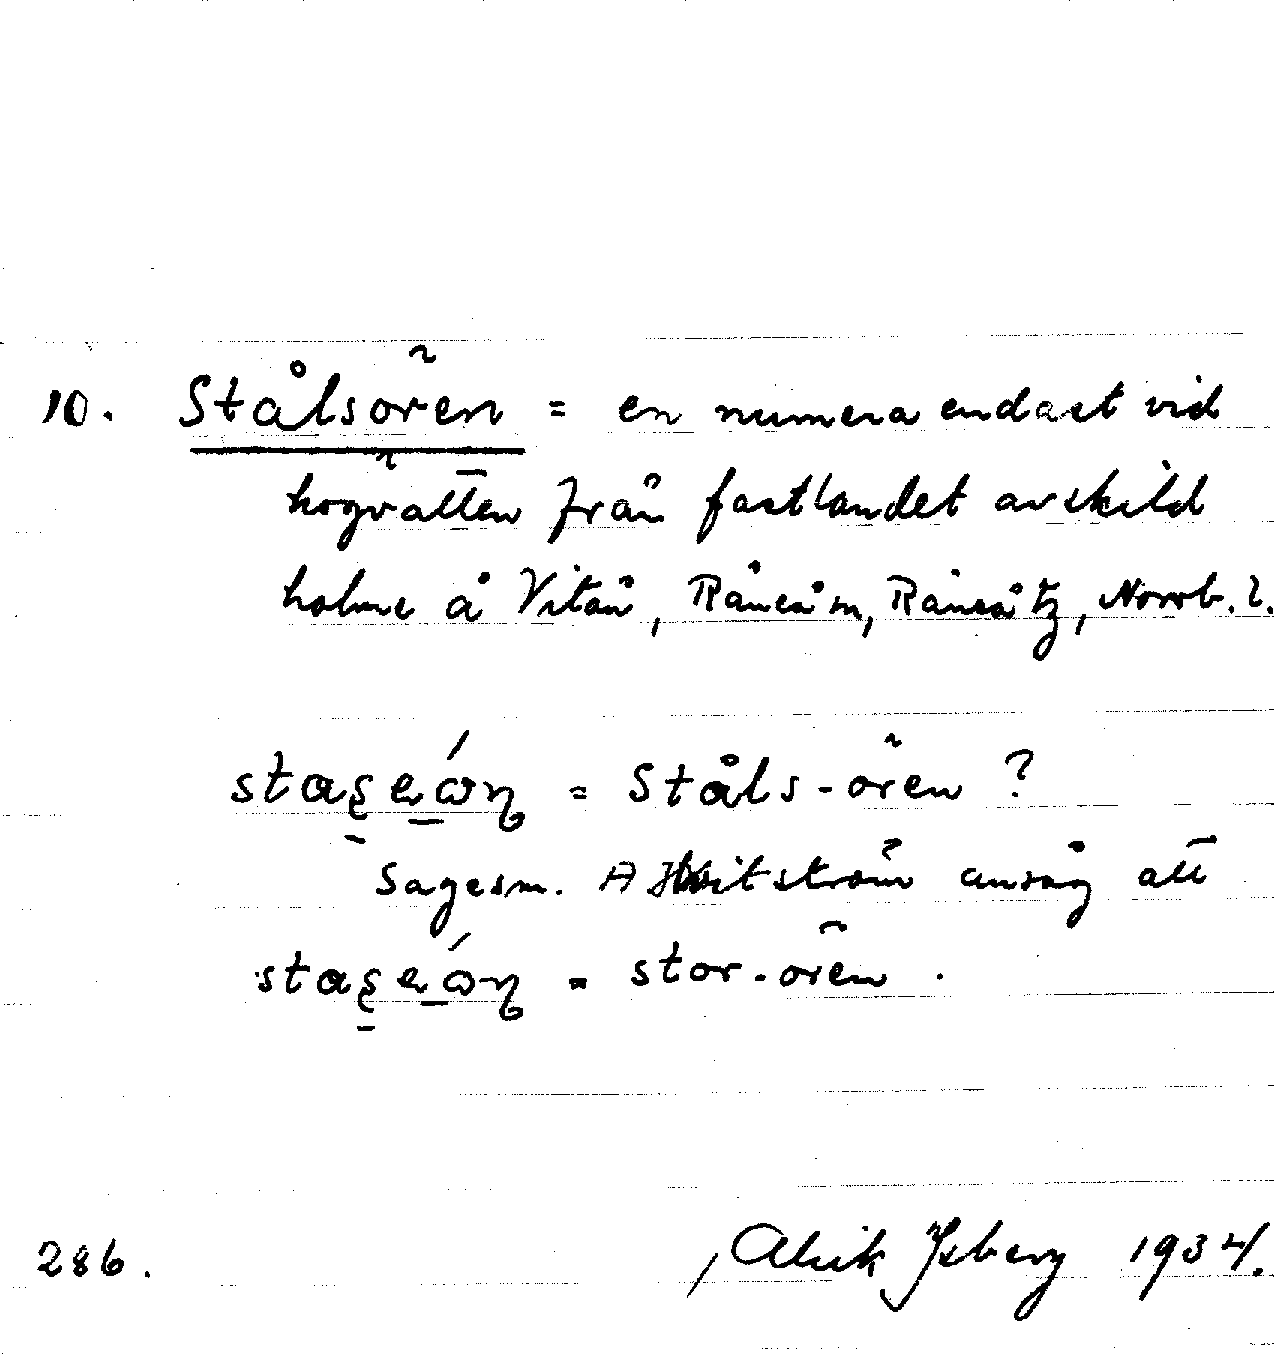 10. Stålsören = en numera endast vid
högvatten från fastlandet avskild
holme å Vitån, Råneå sn, Råneå tg, Norrb. l.
= Ståls-ören ?
Sagesm. A Hvitström ansåg att
= stor-ören .
286. Alrik Isberg 1934.